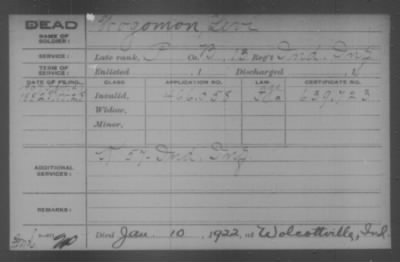 DEAD
NAME OF SOLDIER: Wogomon, Levi
SERVICE: Late rank, P Co. B, 12 Reg't Ind. Inf.
TERM OF SERVICE: Enlisted , 1 Discharged , 1
DATE OF FILING. CLASS. APPLICATION NO. LAW. CERTIFICATE NO.
Invalid, 466,358 639,723
Widow,
Minor,
ADDITIONAL SERVICES: 57 Ind. Inf.
REMARKS:
Died Jan. 10, 1922, at Wolcottville, Ind.